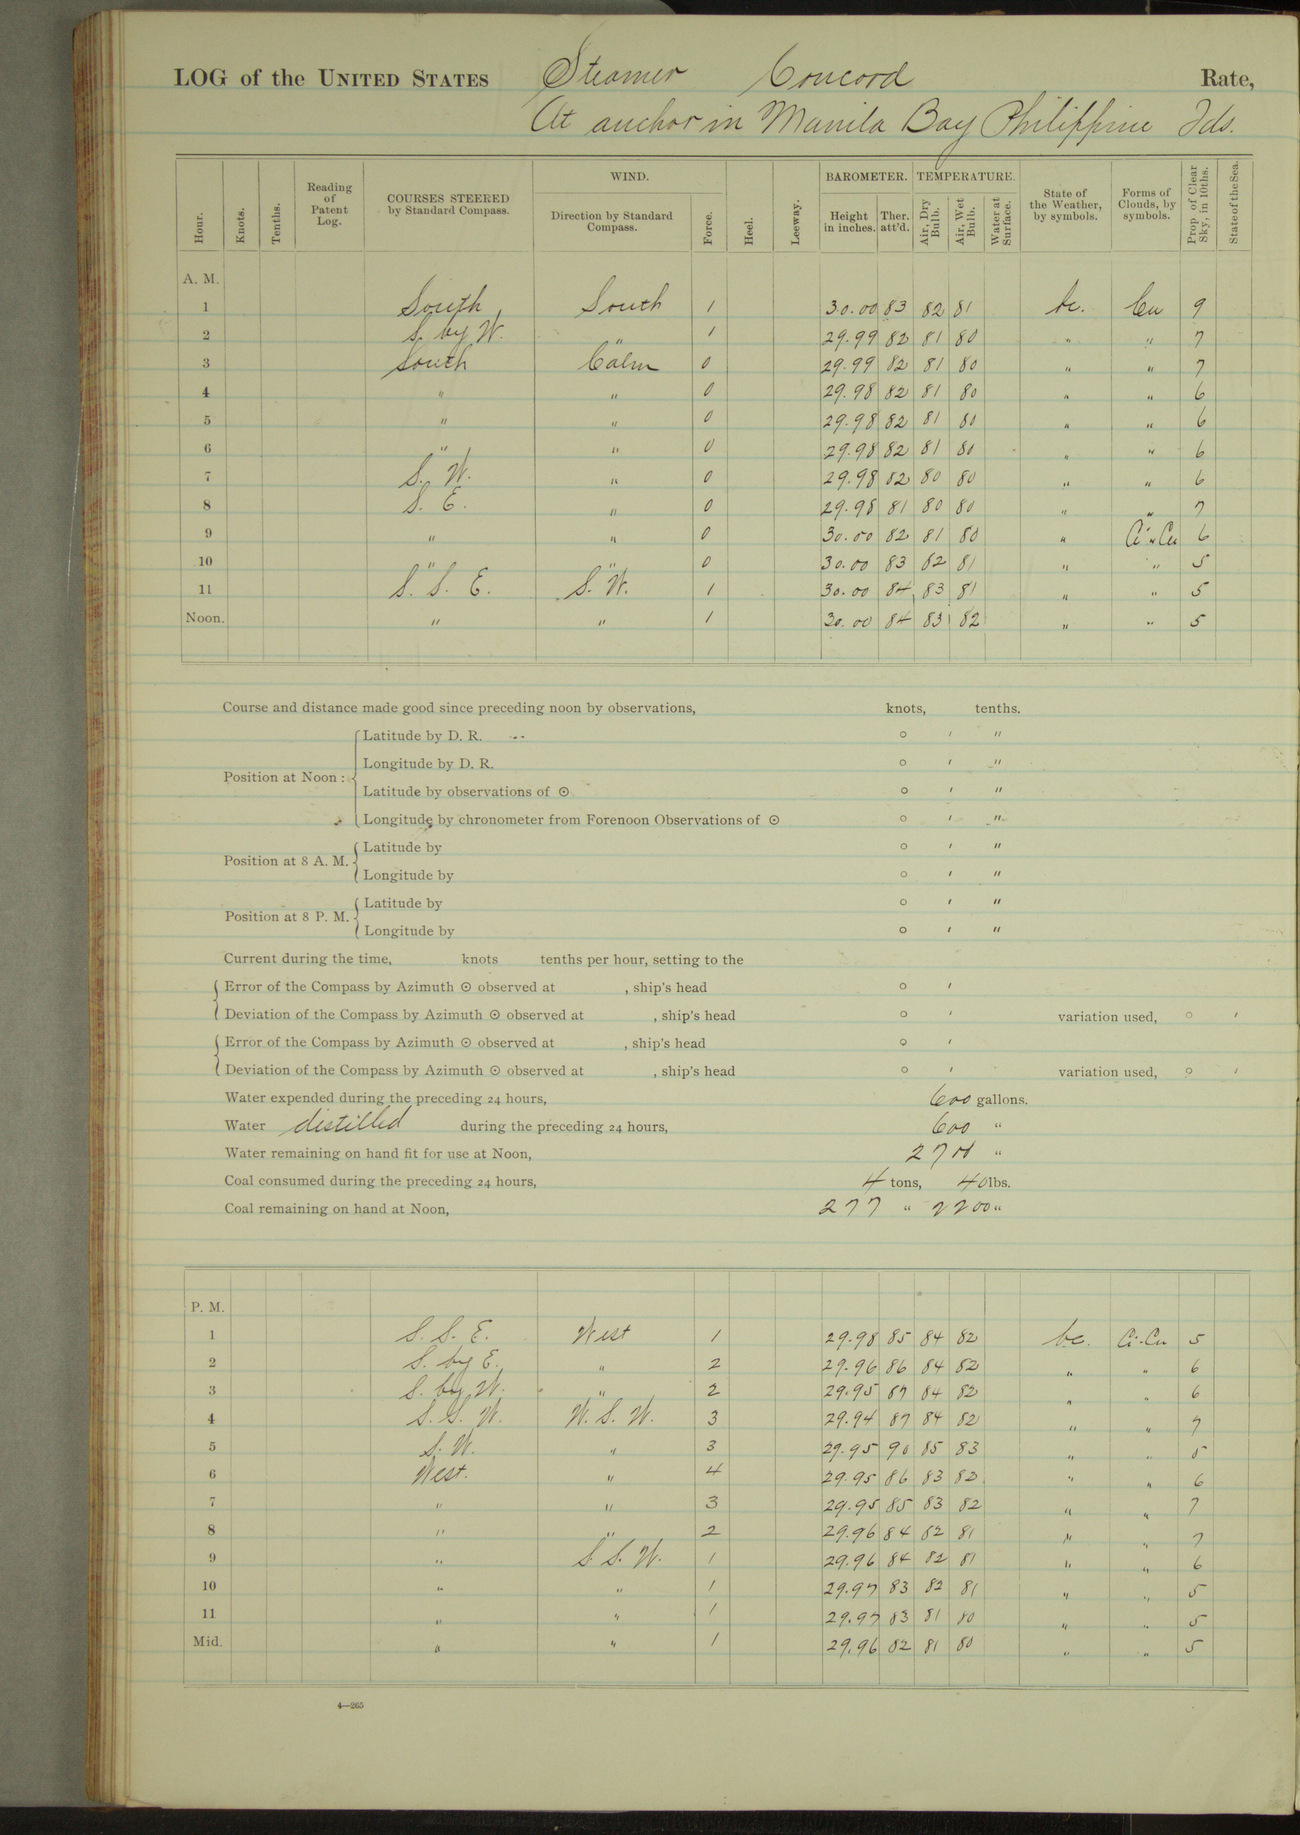 LOG of the UNITED STATES Steamer Concord Rate,
At anchor in Manila Bay Philippine Ids.
Hour. Knots. Tenths. Reading of Patent Log. COURSES STEERED by Standard Compass. WIND. Direction by Standard Compass. Force. Heel. Leeway. BAROMETER. Height in inches. Ther. att'd. TEMPERATURE. Air, Dry Bulb. Air, Wet Bulb. Water at Surface. State of the Weather, by symbols. Forms of Clouds, by symbols. Prop. of Clear Sky, in 10ths. State of the Sea.
A. M.
1 South South 1 30.00 83 82 81 bc. Cu 9
2 S. by W. " 1 29.99 82 81 80 " " 7
3 South Calm 0 29.99 82 81 80 " " 7
4 " " 0 29.98 82 81 80 " " 6
5 " " 0 29.98 82 81 80 " " 6
6 " " 0 29.98 82 81 80 " " 6
7 S. W. " 0 29.98 82 80 80 " " 6
8 S. E. " 0 29.98 81 80 80 " " 7
9 " " 0 30.00 82 81 80 " Ci-Cu 6
10 " " 0 30.00 83 82 81 " " 5
11 S. S. E. S. W. 1 30.00 84 83 81 " " 5
Noon. " " 1 30.00 84 83 82 " " 5
Course and distance made good since preceding noon by observations, knots, tenths.
Position at Noon: Latitude by D. R. ° ′ ″
Longitude by D. R. ° ′ ″
Latitude by observations of ⊙ ° ′ ″
Longitude by chronometer from Forenoon Observations of ⊙ ° ′ ″
Position at 8 A. M. Latitude by ° ′ ″
Longitude by ° ′ ″
Position at 8 P. M. Latitude by ° ′ ″
Longitude by ° ′ ″
Current during the time, knots tenths per hour, setting to the
Error of the Compass by Azimuth ⊙ observed at , ship's head ° ′
Deviation of the Compass by Azimuth ⊙ observed at , ship's head ° ′ variation used, ° ′
Error of the Compass by Azimuth ⊙ observed at , ship's head ° ′
Deviation of the Compass by Azimuth ⊙ observed at , ship's head ° ′ variation used, ° ′
Water expended during the preceding 24 hours, 600 gallons.
Water distilled during the preceding 24 hours, 600 "
Water remaining on hand fit for use at Noon, 2700 "
Coal consumed during the preceding 24 hours, 4 tons, 40 lbs.
Coal remaining on hand at Noon, 277 " 2200 "
P. M.
1 S. S. E. West 1 29.98 85 84 82 bc. Ci-Cu 5
2 S. by E. " 2 29.96 86 84 82 " " 6
3 S. by W. " 2 29.95 87 84 82 " " 6
4 S. S. W. W. S. W. 3 29.94 87 84 82 " " 7
5 S. W. " 3 29.95 90 85 83 " "
6 West. " 4 29.95 86 83 82 " " 6
7 " " 3 29.95 85 83 82 " " 7
8 " " 2 29.96 84 82 81 " " 7
9 " S. S. W. 1 29.96 84 82 81 " " 6
10 " " 1 29.97 83 82 81 " " 5
11 " " 1 29.97 83 81 80 " " 5
Mid. " " 1 29.96 82 81 80 " " 5
4—265